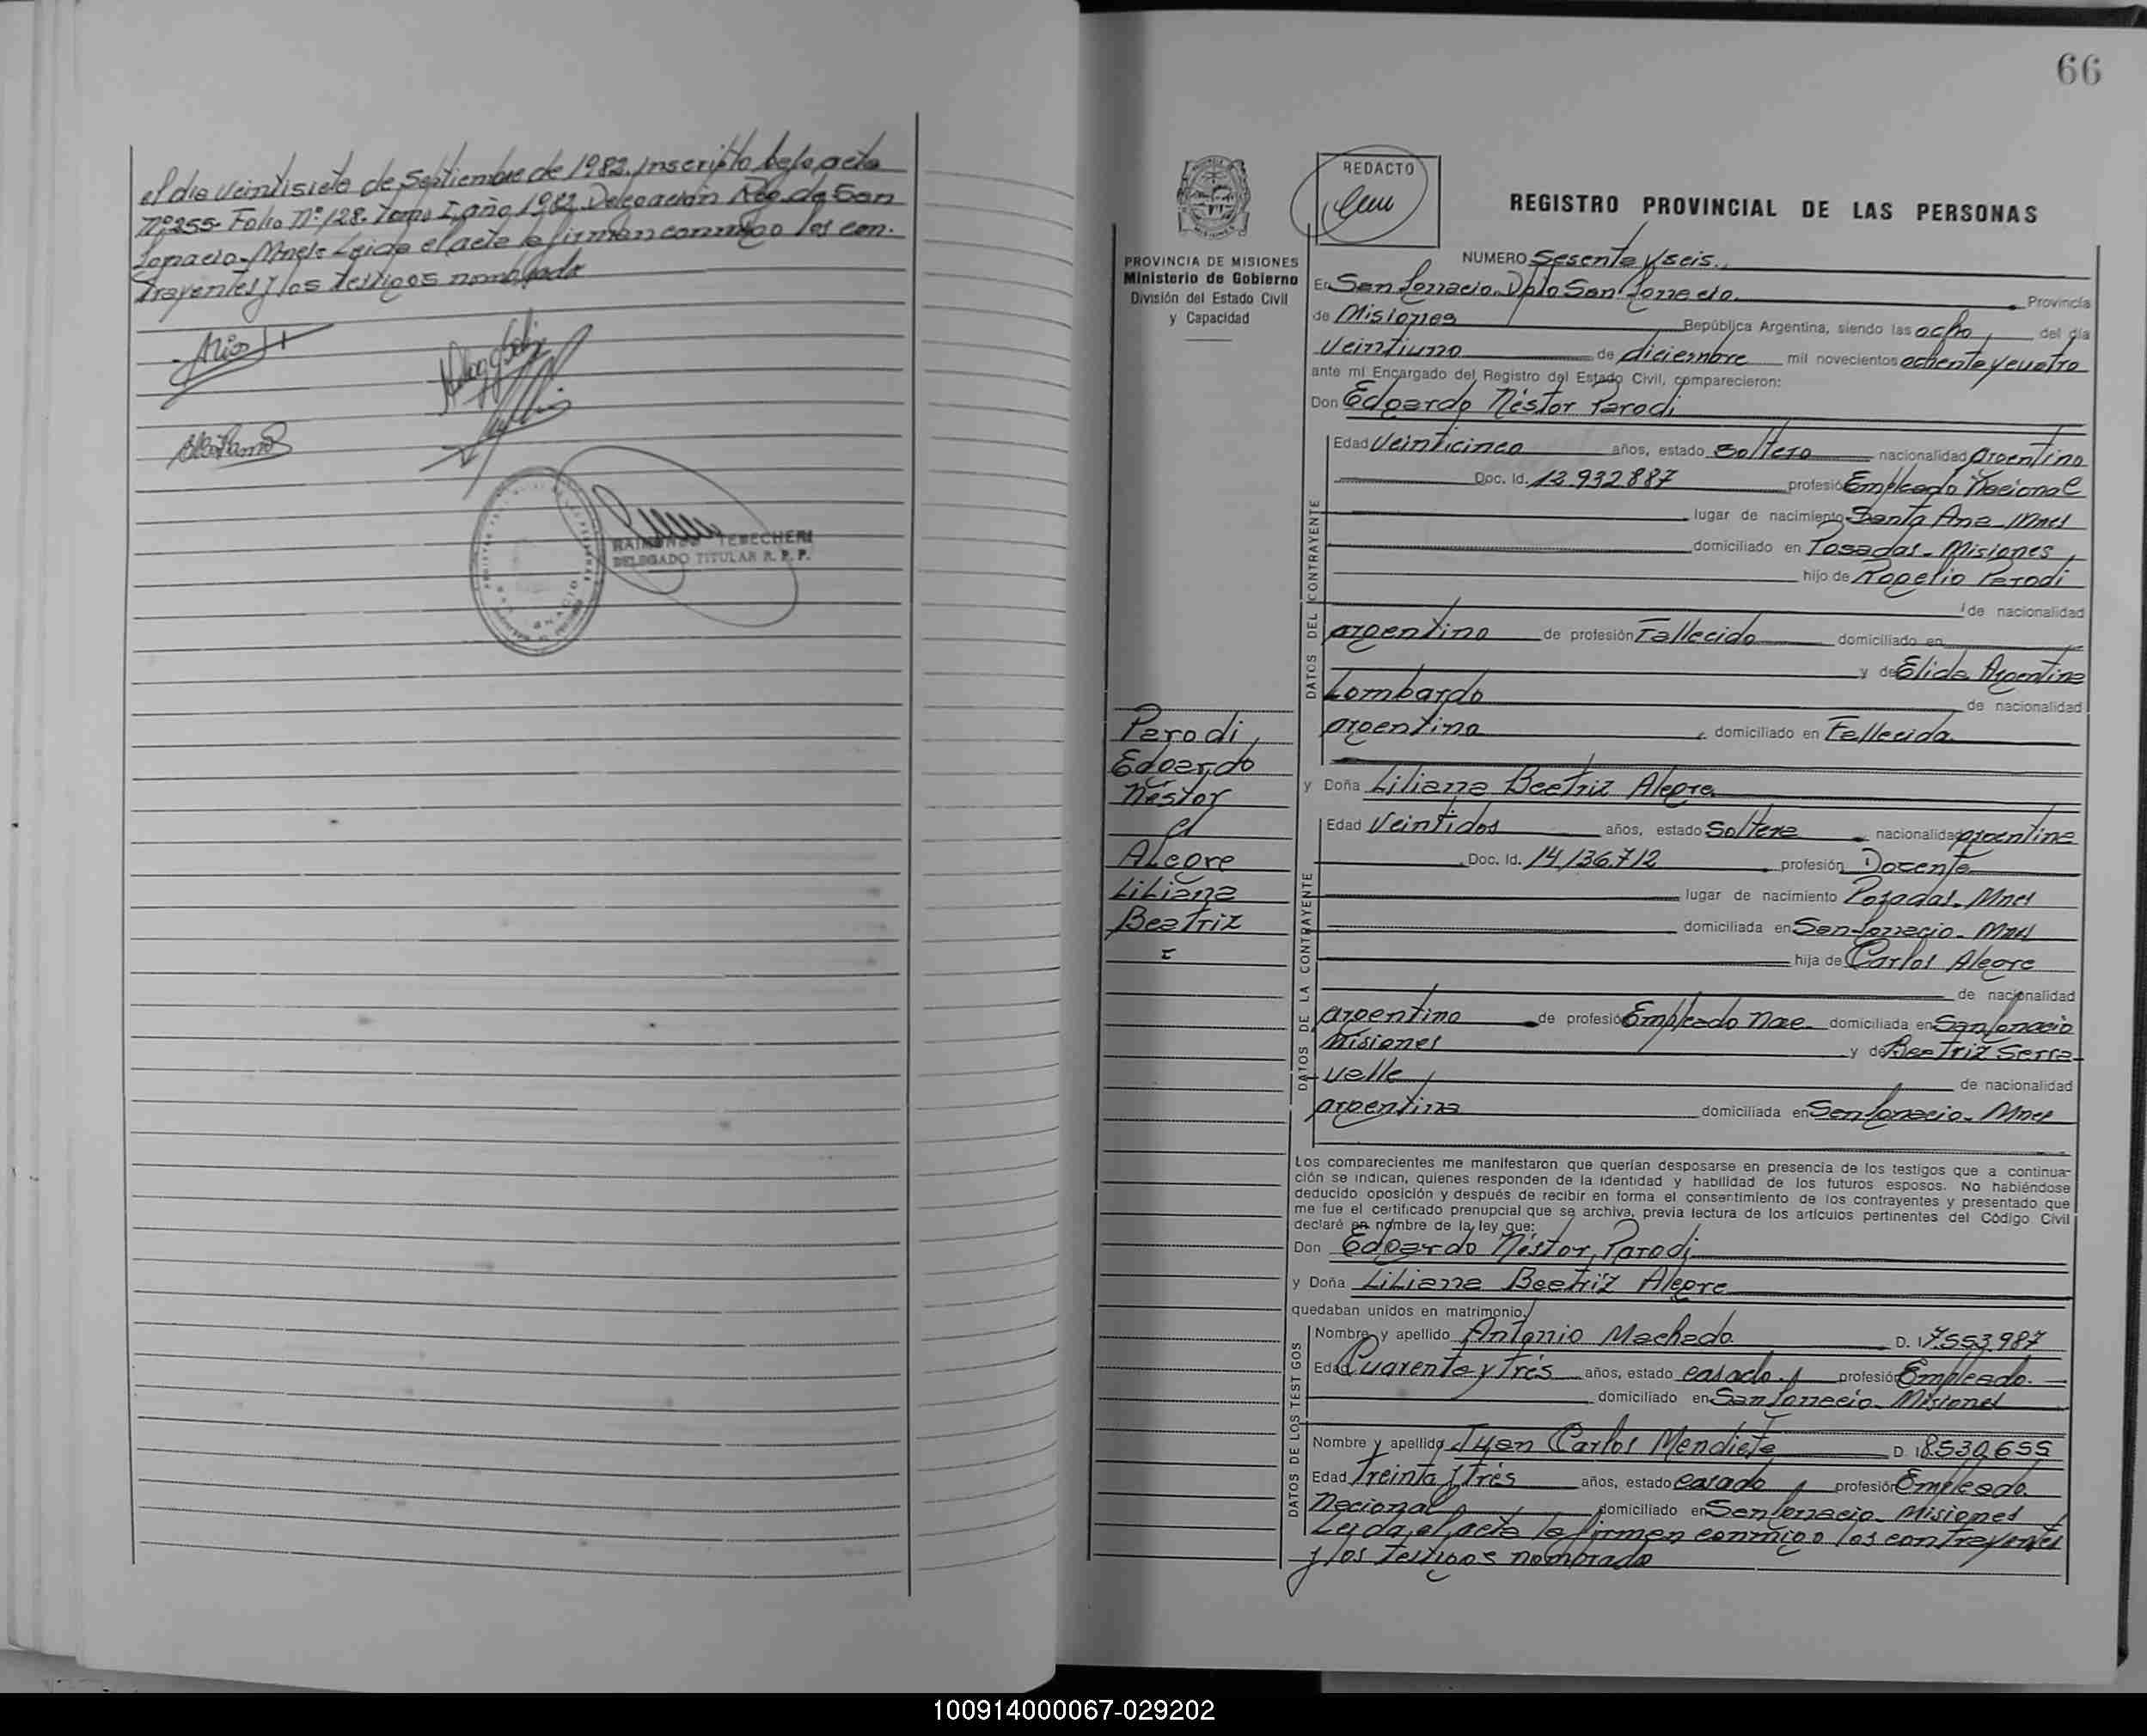 el dia veintisiete de Septiembre de 1982. Inscripto bajo acta
Nº 255. Folio Nº 128. Tomo I, año 1982. Delegación Reg. de San
Ignacio. Mnes. Leida el acta la firman conmigo los con-
trayentes y los testigos nombrado
RAIMUNDO TEBECHERI
DELEGADO TITULAR R. P. P.
66
REDACTO
REGISTRO PROVINCIAL DE LAS PERSONAS
PROVINCIA DE MISIONES
Ministerio de Gobierno
División del Estado Civil
y Capacidad
NUMERO Sesenta y seis.
En San Ignacio. Dpto San Ignacio. Provincia
de Misiones República Argentina, siendo las ocho del día
Veintiuno de diciembre mil novecientos ochenta y cuatro
ante mí Encargado del Registro del Estado Civil, comparecieron:
Don Edgardo Néstor Parodi
DATOS DEL CONTRAYENTE
Edad Veinticinco años, estado Soltero nacionalidad argentino
Doc. Id. 12.932.887 profesión Empleado Nacional
lugar de nacimiento Santa Ana Mnes
domiciliado en Posadas. Misiones
hijo de Rogelio Parodi
de nacionalidad
argentino de profesión Fallecido domiciliado en
y de Elida Argentina
Lombardo de nacionalidad
argentina domiciliado en Fallecida
Parodi,
Edgardo
Néstor
Alegre
Liliana
Beatriz
y Doña Liliana Beatriz Alegre.
DATOS DE LA CONTRAYENTE
Edad Veintidos años, estado Soltera nacionalidad argentina
Doc. Id. 14.136.712 profesión Docente
lugar de nacimiento Posadas. Mnes
domiciliada en San Ignacio. Mnes
hija de Carlos Alegre
de nacionalidad
argentino de profesión Empleado Nac. domiciliada en San Ignacio
Misiones y de Beatriz Serra-
valle de nacionalidad
argentina domiciliada en San Ignacio. Mnes
Los comparecientes me manifestaron que querían desposarse en presencia de los testigos que a continua-
ción se indican, quienes responden de la identidad y habilidad de los futuros esposos. No habiéndose
deducido oposición y después de recibir en forma el consentimiento de los contrayentes y presentado que
me fue el certificado prenupcial que se archiva, previa lectura de los artículos pertinentes del Código Civil
declaré en nombre de la ley que:
Don Edgardo Néstor Parodi
y Doña Liliana Beatriz Alegre
quedaban unidos en matrimonio.
DATOS DE LOS TESTIGOS
Nombre y apellido Antonio Machado D. I. 7.553.987
Edad Cuarenta y Trés años, estado casado profesión Empleado.
domiciliado en San Ignacio. Misiones
Nombre y apellido Juan Carlos Mendieta D. I. 8.530.655
Edad Treinta y Trés años, estado casado profesión Empleado
Nacional domiciliado en San Ignacio. Misiones
Leida el acta la firman conmigo los contrayentes
y los testigos nombrado
100914000067-029202